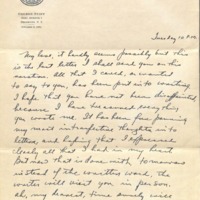 Tuesday 10 P.M.
My dear, it hardly seems possible but this
is the last letter I shall send you on this
vacation. All that I could, or wanted
to say to you, has been put in writing
I hope that you have not been disappointed
because I have answered everything
you wrote me. It has been fine pouring
my most intimate thoughts in to
letters, and hoping that it affected
closely all that I had in my heart
But now that is done with tomorrow
instead of the written word, the
writer will visit you in person.
Ah, my dearest, time surely will